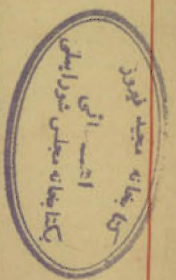 کتابخانه مجد فیروز
اهـدائی
بکتابخانه مجلس شورایملی